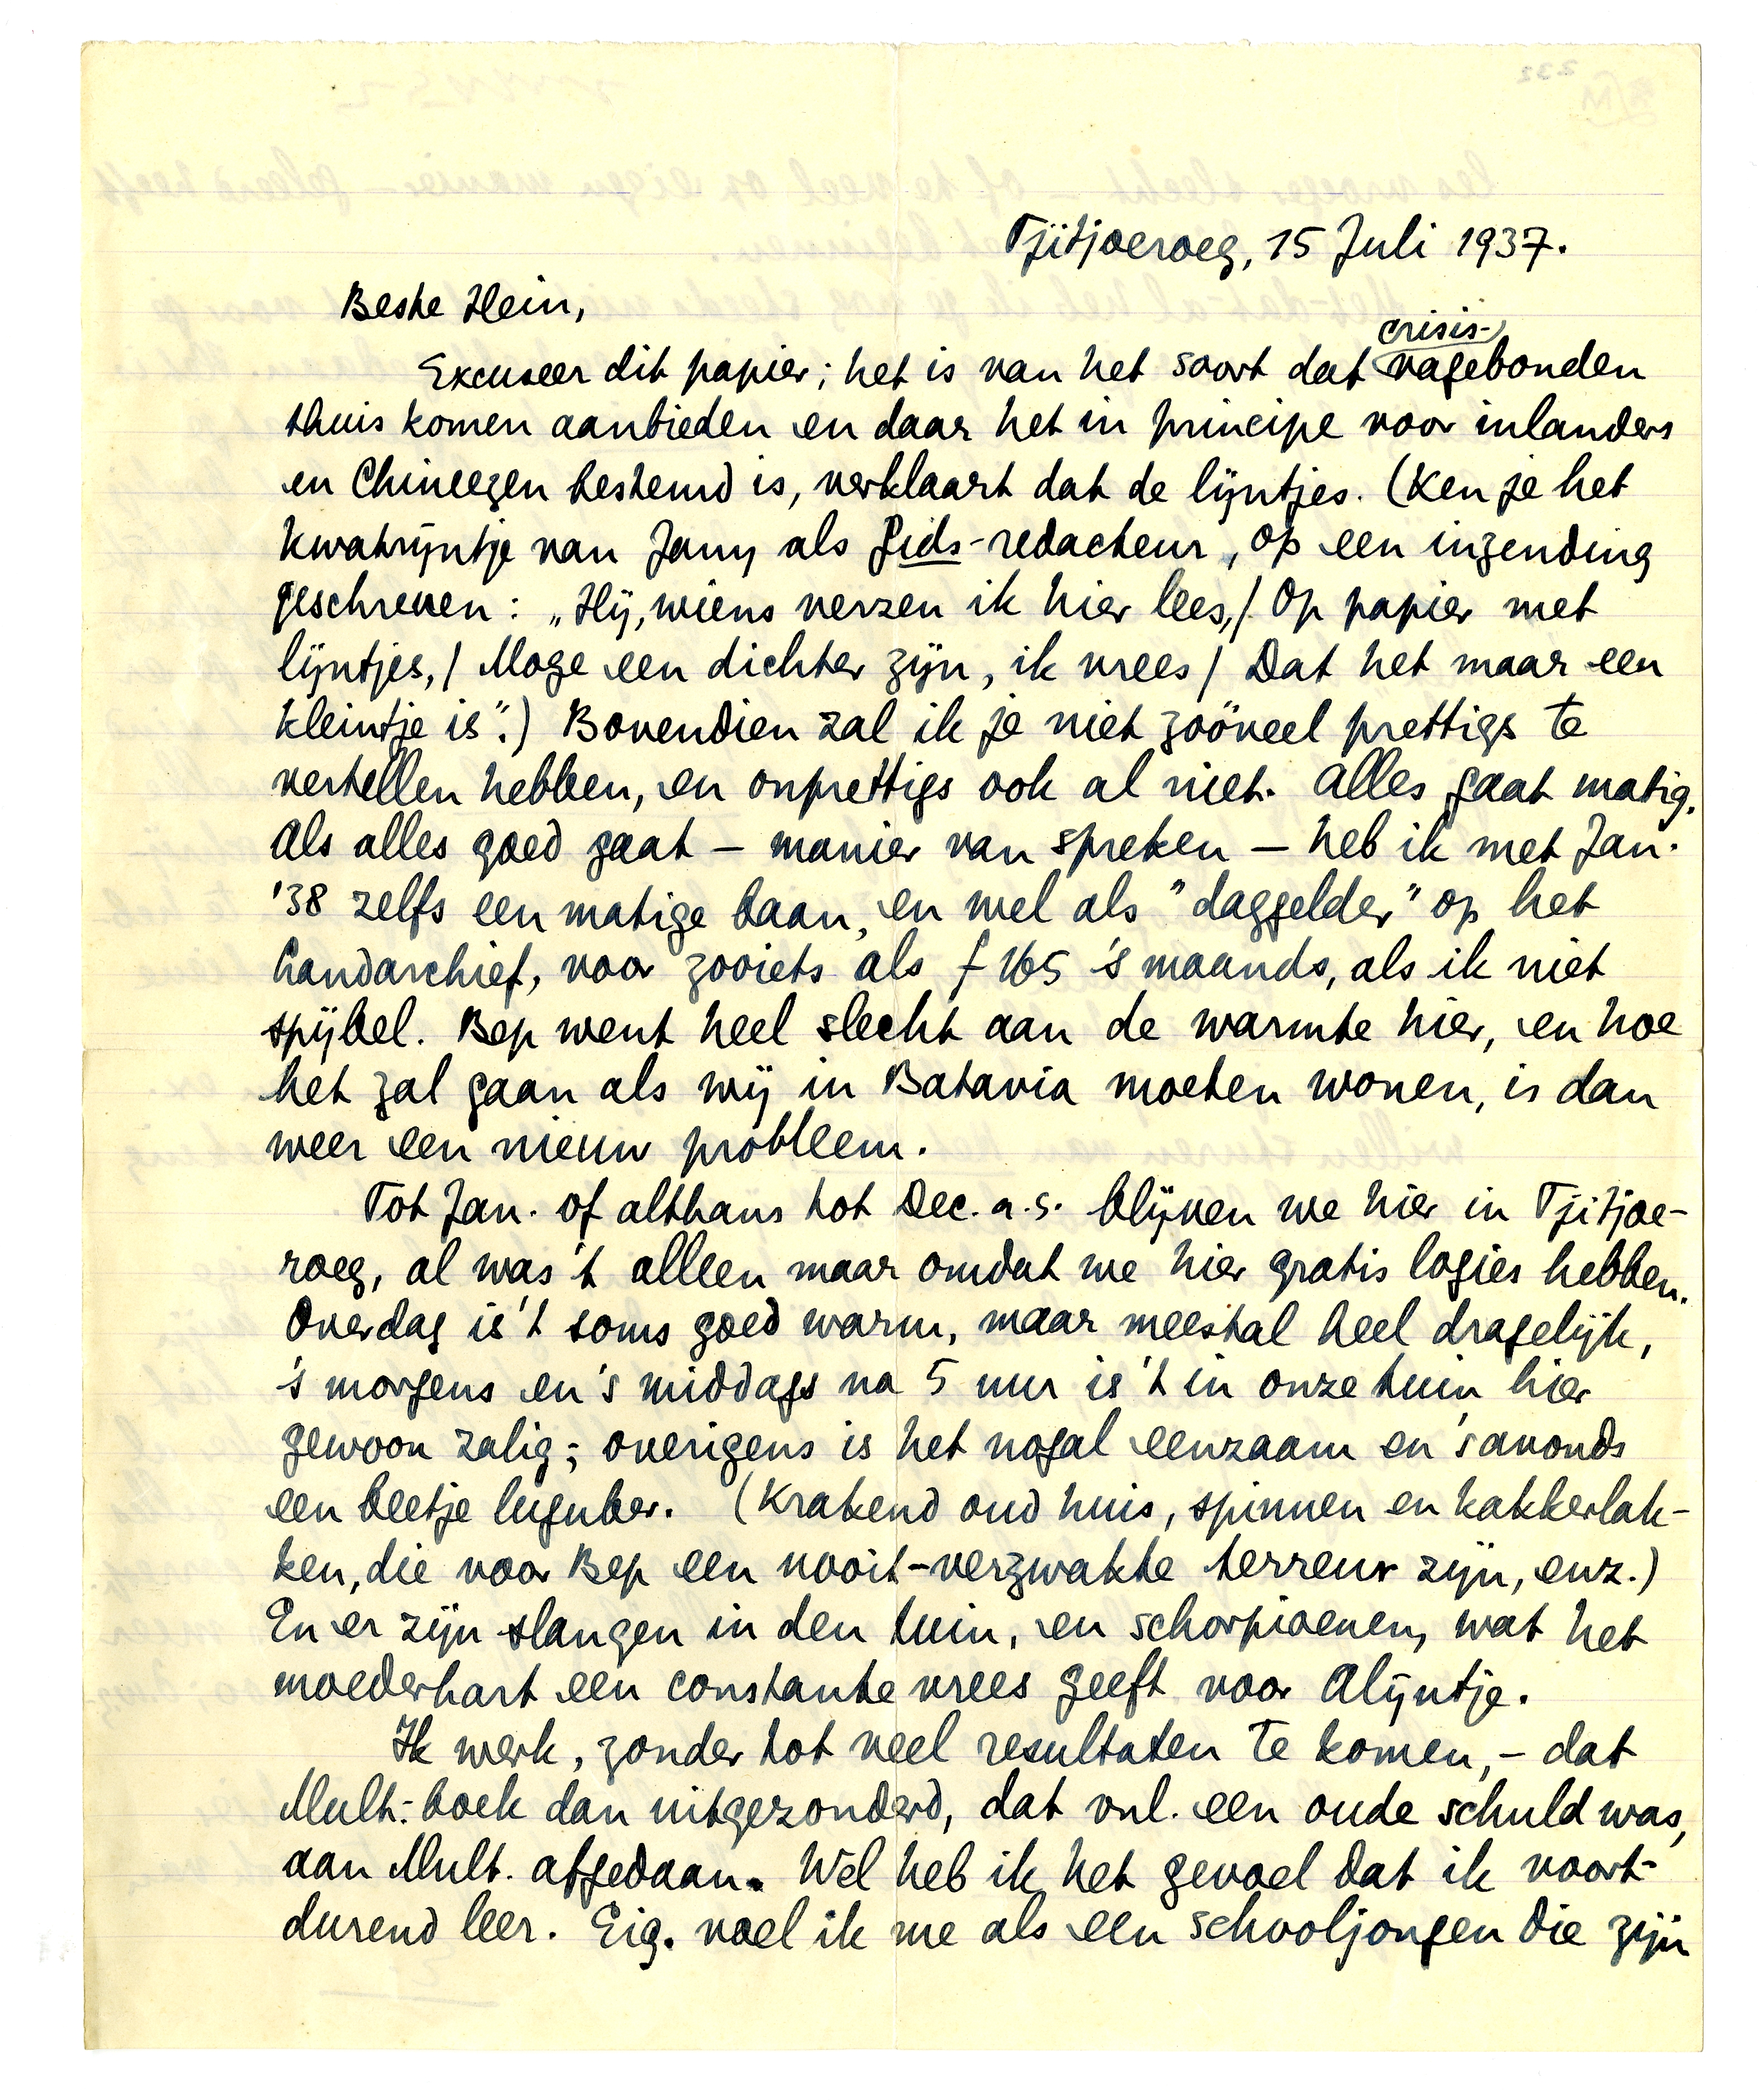 Tjitjoeroeg, 15 Juli 1937.
Beste Hein,
crisis-
Excuseer dit papier; het is van het soort dat vagebonden
thuis komen aanbieden en daar het in principe voor inlanders
en Chineezen bestemd is, verklaart dat de lijntjes. (Ken je het
kwatrijntje van Jany als Gids-redacteur, op een inzending
geschreven: „Hij, wiens verzen ik hier lees,/ Op papier met
lijntjes,/ Moge een dichter zijn, ik vrees/ Dat het maar een
kleintje is".) Bovendien zal ik je niet zoöveel prettigs te
vertellen hebben, en onprettigs ook al niet. Alles gaat matig.
Als alles goed gaat – manier van spreken – heb ik met Jan.
'38 zelfs een matige baan, en wel als "daggelder" op het
Landarchief, voor zooiets als f 165 's maands, als ik niet
spijbel. Bep went heel slecht aan de warmte hier, en hoe
het zal gaan als wij in Batavia moeten wonen, is dan
weer een nieuw probleem.
Tot Jan. of althans tot Dec. a.s. blijven we hier in Tjitjoe-
roeg, al was 't alleen maar omdat we hier gratis logies hebben.
Overdag is 't soms goed warm, maar meestal heel dragelijk,
's morgens en 's middags na 5 uur is 't in onze tuin hier
gewoon zalig; overigens is het nogal eenzaam en 's avonds
een beetje luguber. (Krakend oud huis, spinnen en kakkerlak-
ken, die voor Bep een nooit-verzwakte terreur zijn, enz.)
En er zijn slangen in den tuin, en schorpioenen, wat het
moederhart een constante vrees geeft voor Alijntje.
Ik werk, zonder tot veel resultaten te komen, – dat
Mult.-boek dan uitgezonderd, dat vnl. een oude schuld was,
aan Mult. afgedaan. Wel heb ik het gevoel dat ik voort-
durend leer. Eig. voel ik me als een schooljongen die zijn